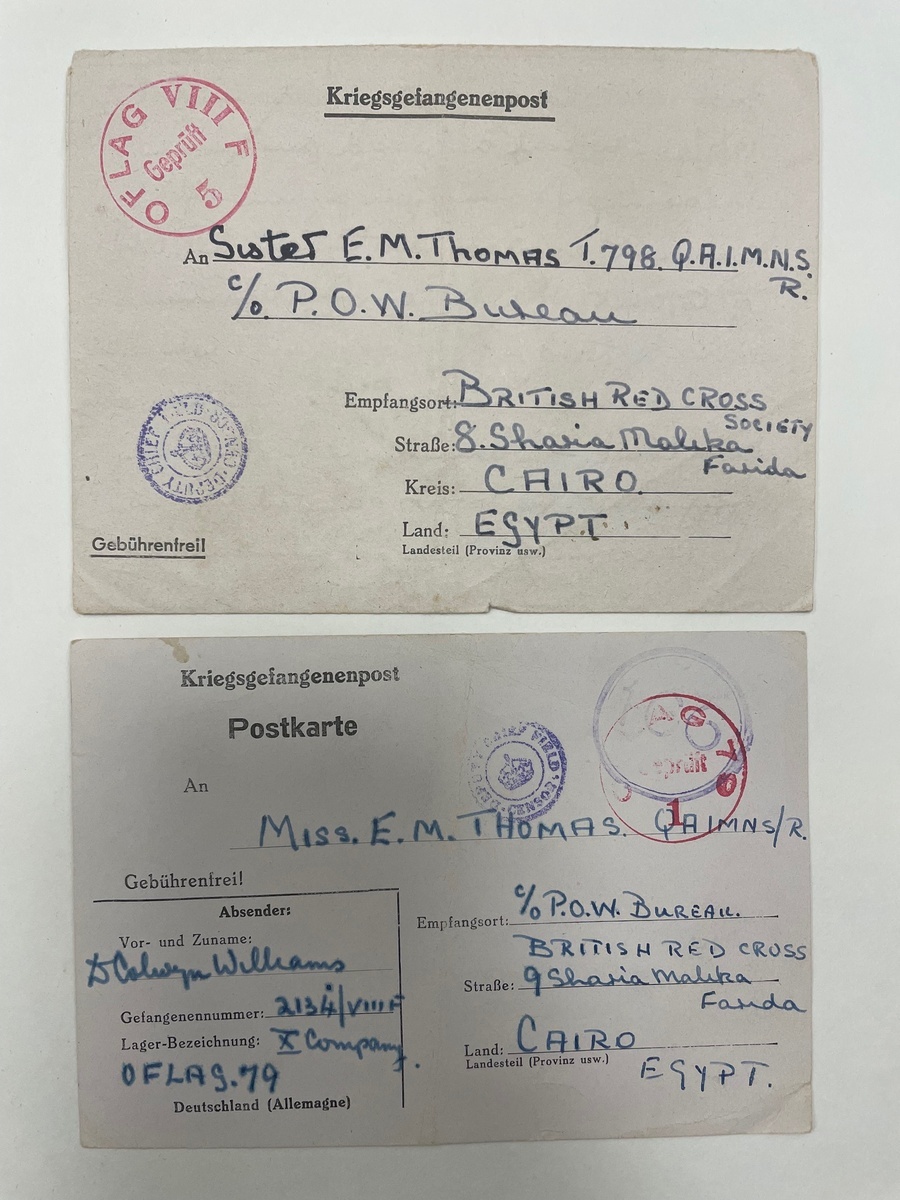 OFLAG VIII F
Geprüft
5
Kriegsgefangenenpost
An Sister E.M. Thomas T.798. Q.A.I.M.N.S.
R.
c/o P.O.W. Bureau
Empfangsort: British Red Cross
Society
Straße: 8. Sharia Malika
Farida
Kreis: CAIRO.
Land: EGYPT.
Landesteil (Provinz usw.)
DEPUTY CHIEF FIELD CENSOR
Gebührenfrei!
Kriegsgefangenenpost
Postkarte
DEPUTY CHIEF FIELD CENSOR
OFLAG 79
Geprüft
1
An
Miss. E. M. THOMAS. QAIMNS/R.
Gebührenfrei!
Absender:
Vor- und Zuname:
D Colwyn Williams
Gefangenennummer: 2134/VIII F
Lager-Bezeichnung: X Company.
OFLAG.79
Deutschland (Allemagne)
Empfangsort: c/o P.O.W. Bureau.
British Red Cross
Straße: 9 Sharia Malika
Farida
Land: CAIRO
Landesteil (Provinz usw.)
EGYPT.